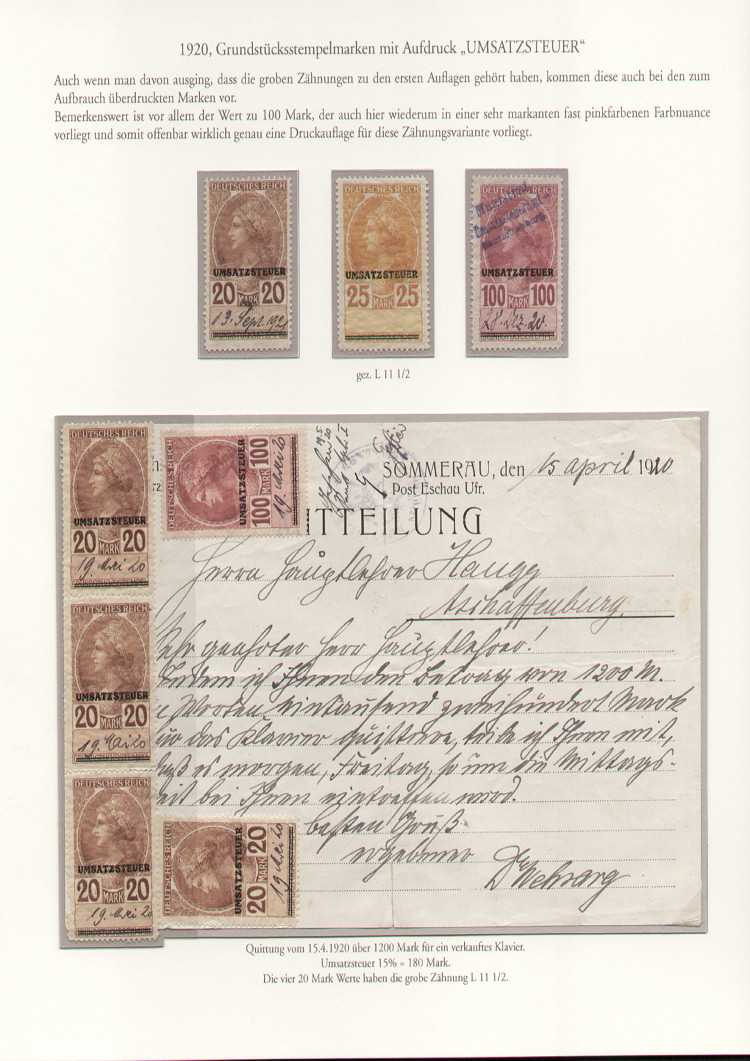 1920, Grundstücksstempelmarken mit Aufdruck „UMSATZSTEUER“
Auch wenn man davon ausging, dass die groben Zähnungen zu den ersten Auflagen gehört haben, kommen diese auch bei den zum
Aufbrauch überdruckten Marken vor.
Bemerkenswert ist vor allem der Wert zu 100 Mark, der auch hier wiederum in einer sehr markanten fast pinkfarbenen Farbnuance
vorliegt und somit offenbar wirklich genau eine Druckauflage für diese Zähnungsvariante vorliegt.
DEUTSCHES REICH
UMSATZSTEUER
20 MARK 20
13. Sept. 1921
DEUTSCHES REICH
UMSATZSTEUER
25 MARK 25
DEUTSCHES REICH
Magistrat
UMSATZSTEUER
100 MARK 100
28. Dez. 20
gez. L 11 1/2
DEUTSCHES REICH
UMSATZSTEUER
20 MARK 20
19. Mai 20
DEUTSCHES REICH
UMSATZSTEUER
100 MARK 100
19. Mai 20
SOMMERAU, den 15 april 1920
Post Eschau Ufr.
ITTEILUNG
Herrn Hauptlehrer Haugg
Aschaffenburg.
Sehr geehrter Herr Hauptlehrer!
Indem ich Ihnen den Betrag von 1200 M.
Worten eintausend zweihundert Mark
das Klavier quittiere, teile ich Ihnen mit,
daß es morgen, Freitag, so um die Mittags-
zeit bei Ihnen eintreffen wird.
besten Gruß
ergebener
DEUTSCHES REICH
UMSATZSTEUER
20 MARK 20
19. Mai 20
DEUTSCHES REICH
UMSATZSTEUER
20 MARK 20
19. Mai 20
GRUNDSTÜCKSSTEMPEL
DEUTSCHES REICH
UMSATZSTEUER
20 MARK 20
19 Mai 20
Quittung vom 15.4.1920 über 1200 Mark für ein verkauftes Klavier.
Umsatzsteuer 15% = 180 Mark.
Die vier 20 Mark Werte haben die grobe Zähnung L 11 1/2.